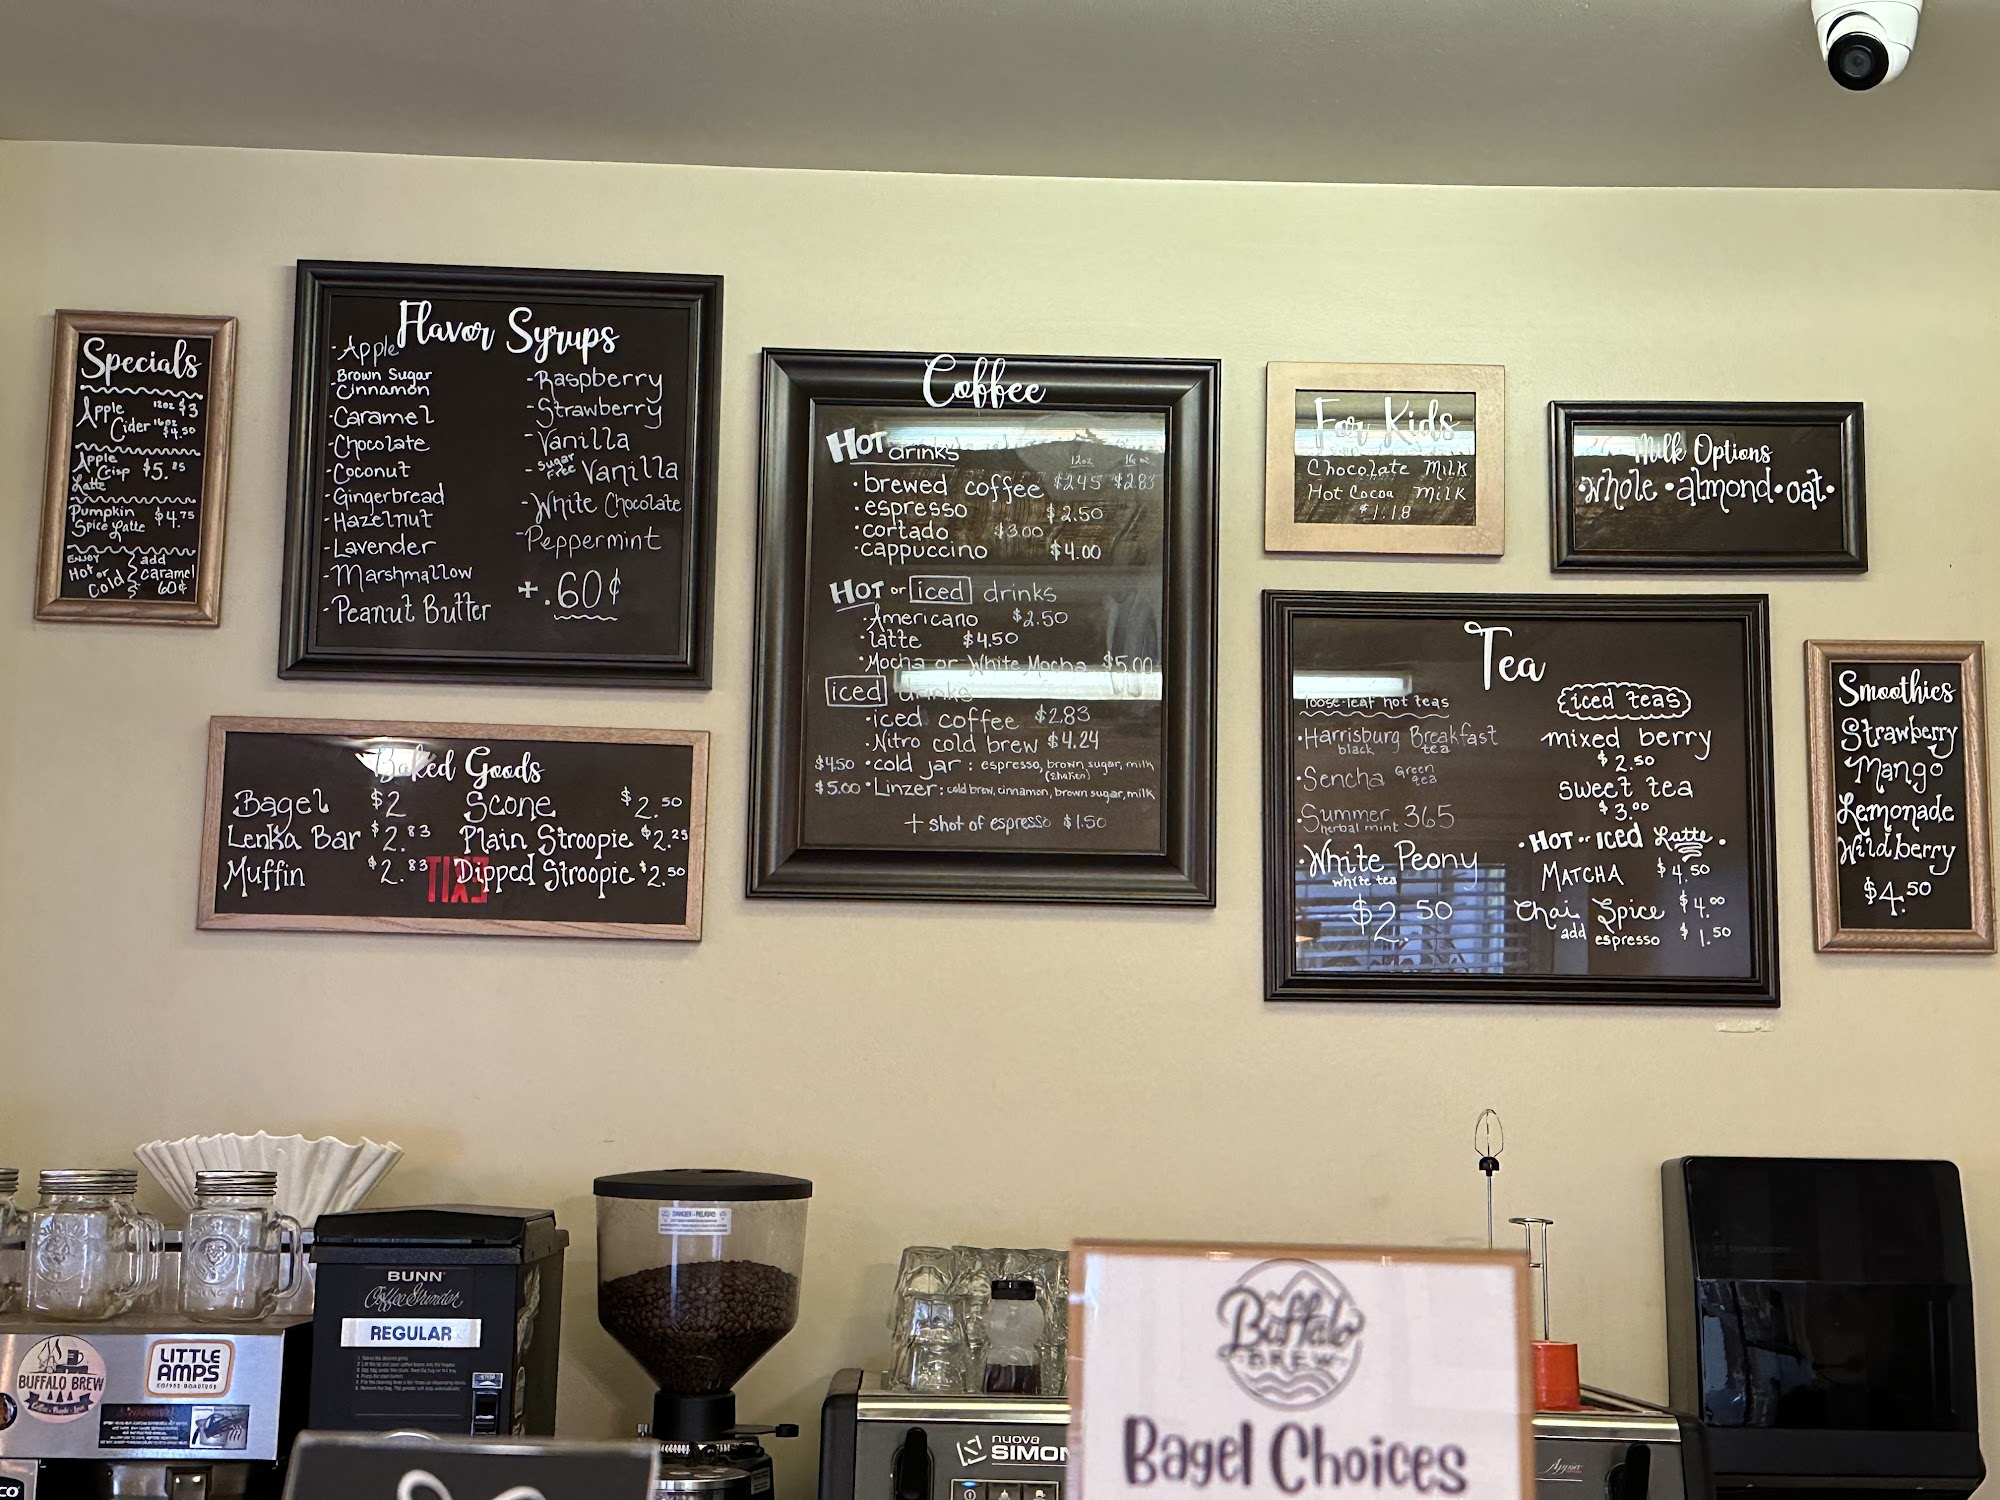 Specials
Apple 12oz $3
Cider 16oz $4.50
Apple
Crisp $5.
Latte
Pumpkin $4.75
Spice Latte
ENJOY
Hot or
Cold
add
caramel
60¢
Flavor Syrups
-Apple
-Brown Sugar
Cinnamon
-Caramel
-Chocolate
-Coconut
-Gingerbread
-Hazelnut
-Lavender
-Marshmallow
-Peanut Butter
-Raspberry
-Strawberry
-Vanilla
-Sugar Free Vanilla
-White Chocolate
-Peppermint
+.60¢
Baked Goods
Bagel $2
Lenka Bar $2.83
Muffin $2.83
Scone $2.50
Plain Stroopie $2.25
Dipped Stroopie $2.50
Coffee
HOT drinks
12oz 16oz
•brewed coffee $2.45 $2.83
•espresso $2.50
•cortado $3.00
•cappuccino $4.00
HOT or iced drinks
•Americano $2.50
•latte $4.50
•Mocha or White Mocha $5.00
iced drinks
•iced coffee $2.83
•Nitro cold brew $4.24
$4.50 •cold jar: espresso, brown sugar, milk
(shaken)
$5.00 •Linzer: cold brew, cinnamon, brown sugar, milk
+ shot of espresso $1.50
For Kids
Chocolate Milk
Hot Cocoa Milk
$1.18
Milk Options
•whole •almond•oat•
Tea
loose-leaf hot teas
•Harrisburg Breakfast
black tea
•Sencha Green tea
•Summer 365
herbal mint
•White Peony
white tea
$2.50
iced teas
mixed berry
$2.50
sweet tea
$3.00
•HOT or ICED Latte•
MATCHA $4.50
Chai Spice $4.00
add espresso $1.50
Smoothies
Strawberry
Mango
Lemonade
Wildberry
$4.50
BUNN
Coffee Grinder
REGULAR
BUFFALO BREW
LITTLE
AMPS
COFFEE ROASTERS
DANGER - PELIGRO
nuova
SIMON
Buffalo
BREW
Bagel Choices